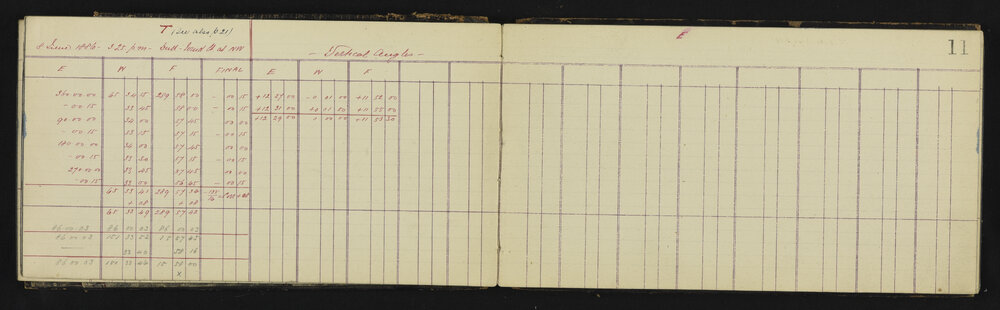 T (see also p 21)
E
11
8 June 1886 - 3.25 p.m. -
- Vertical Angles -
E W F FINAL E W F
360 00 00 65 34 15 289 58 00 - 00 15 +12 27 00 -0 01 00 +11 52 00
- 00 15 33 45 58 00 - 00 15 +12 31 00 +0 01 00 +11 55 00
90 00 00 34 00 57 45 00 00 +12 29 00 0 00 00 +11 53 30
- 00 15 33 15 57 15 - 00 15
180 00 00 34 00 57 45 00 00
- 00 15 33 30 57 15 - 00 15
270 00 00 33 45 57 45 00 00
- 00 15 33 00 56 45 - 00 15
65 33 41 289 57 34
+ 08 + 08
65 33 49 289 57 42
86 00 03 86 00 03 86 00 03
86 00 03 151 33 52 15 57 45
33 40 58 16
86 00 03 151 33 46 15 58 00
x